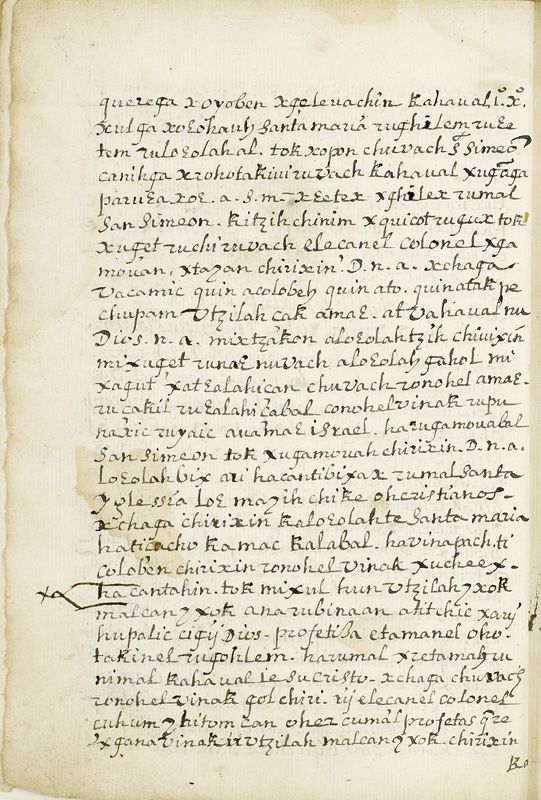 querega xoyoben xgelevachin kahaval, i. x.
xulga xoeohauh Santa maria rughilem ruee
tem ruloeolah al. tok xopon chuvach S. Simeo
canihga xrohotakiui ruvach kahaval xugaga
paruea xoe. a. s. m. xeetex xghilex rumal
San Simeon. kitzih chinim xquicot rugux tok
xuget ruchi ruvach elecanel colonel xga
movan, xtayan chirixin. D. n. a. xchaga
vacamic quin acolobeh quin ato. quinatak pe
chupam utzilah cak amae. at vahaval nu
Dios. n. a. mixtzakon aloeolahtzih chivixin
mixuget runae nuvach aloeolah gahol mi
xagut xatealahican chuvach ronohel amae.
ru cakil ruealahicabal conohel vinak rupu
naxic ruyaic avamae israel. harugamovabal
San Simeon tok xugamovah chirixin. D. n. a.
loeolah bix ari hacantibixax rumal Santa
yglessia loe mayih chike oh cristianos.
xchaga chirixin kaloeolahte Santa maria
haticacho kamac kalabal. havinapich. ti
coloben chirixin ronohel vinak xucheex.
ha cantahin. tok mixul hun utzilah yxok
malcan yxok ana rubinaan atitchic xarij
hupalic cigij Dios. profetisa etamanel oho.
takinel rugohlem. harumal xretamah ru
nimal kahaval Jesu cristo. xchaga chuvach
ronohel vinak gol chiri. rij elecanel colonel
cuhum y bitom can oher cumal profetas qre
xgana vinak ri utzilah malcan yxok chirixin
ka